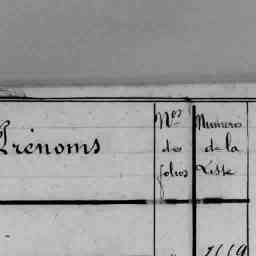 Prénoms
Nos
des
folios
Numéros
de la
Liste